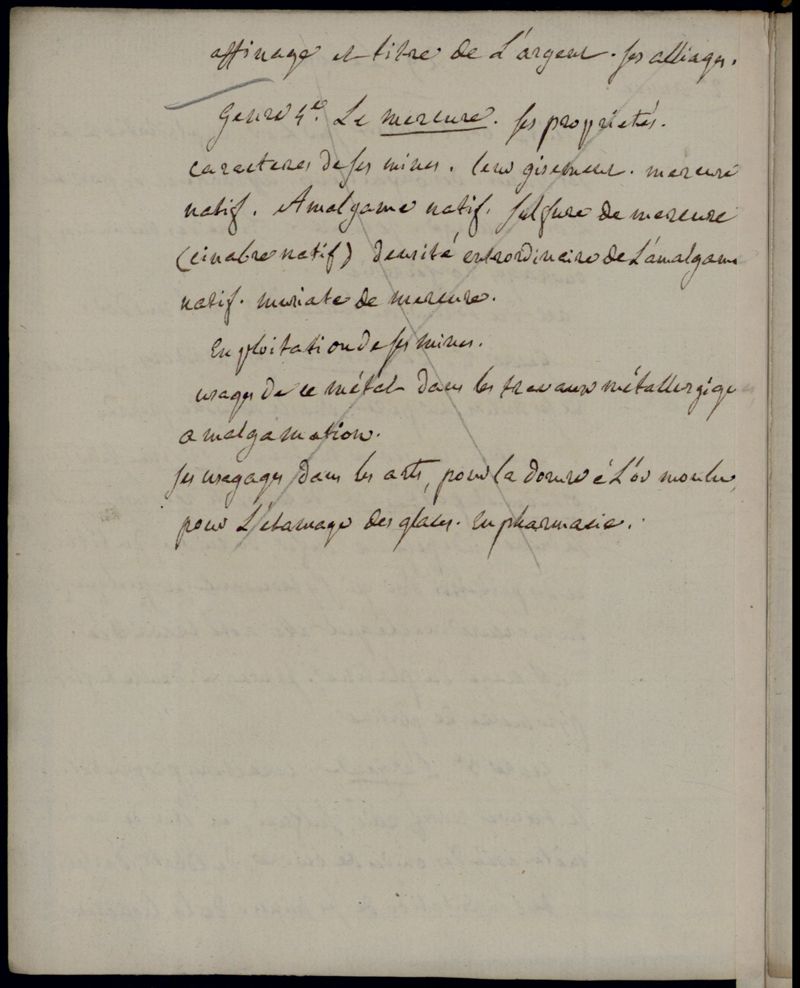 affinage et titre de L'argent. ses alliages.
Genre 4e. Le mercure. ses propriétés.
caracteres de ses mines. leur gisement. mercure
natif. Amalgame natif. sulfure de mercure
(cinabre natif) densité extrordinaire de L'amalgame
natif. muriate de mercure.
Exploitation de ses mines.
usages de ce métal dans les travaux métallergiques
amalgamation.
ses usagages dans les arts, pour la dorure à L'or moulu,
pour L'étamage des glaces. En pharmacie.